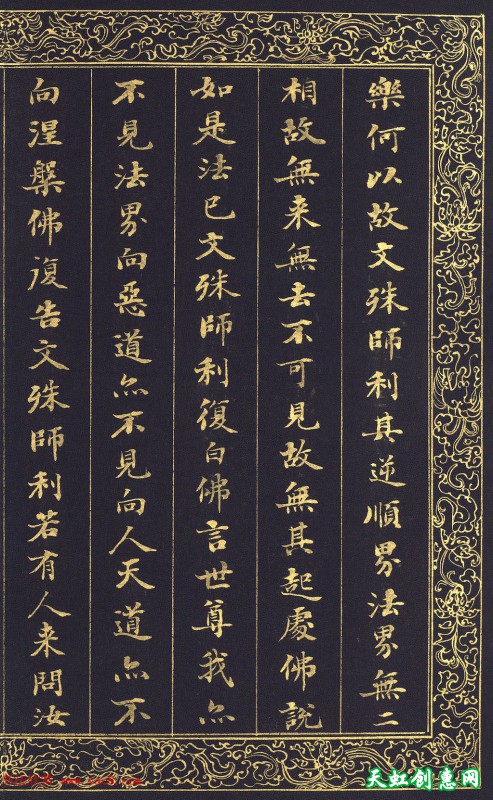 樂何以故文殊師利其逆順界法界無二
相故無来無去不可見故無其起處佛說
如是法已文殊師利復白佛言世尊我亦
不見法界向惡道亦不見向人天道亦不
向涅槃佛復告文殊師利若有人来問汝
天虹创惠网